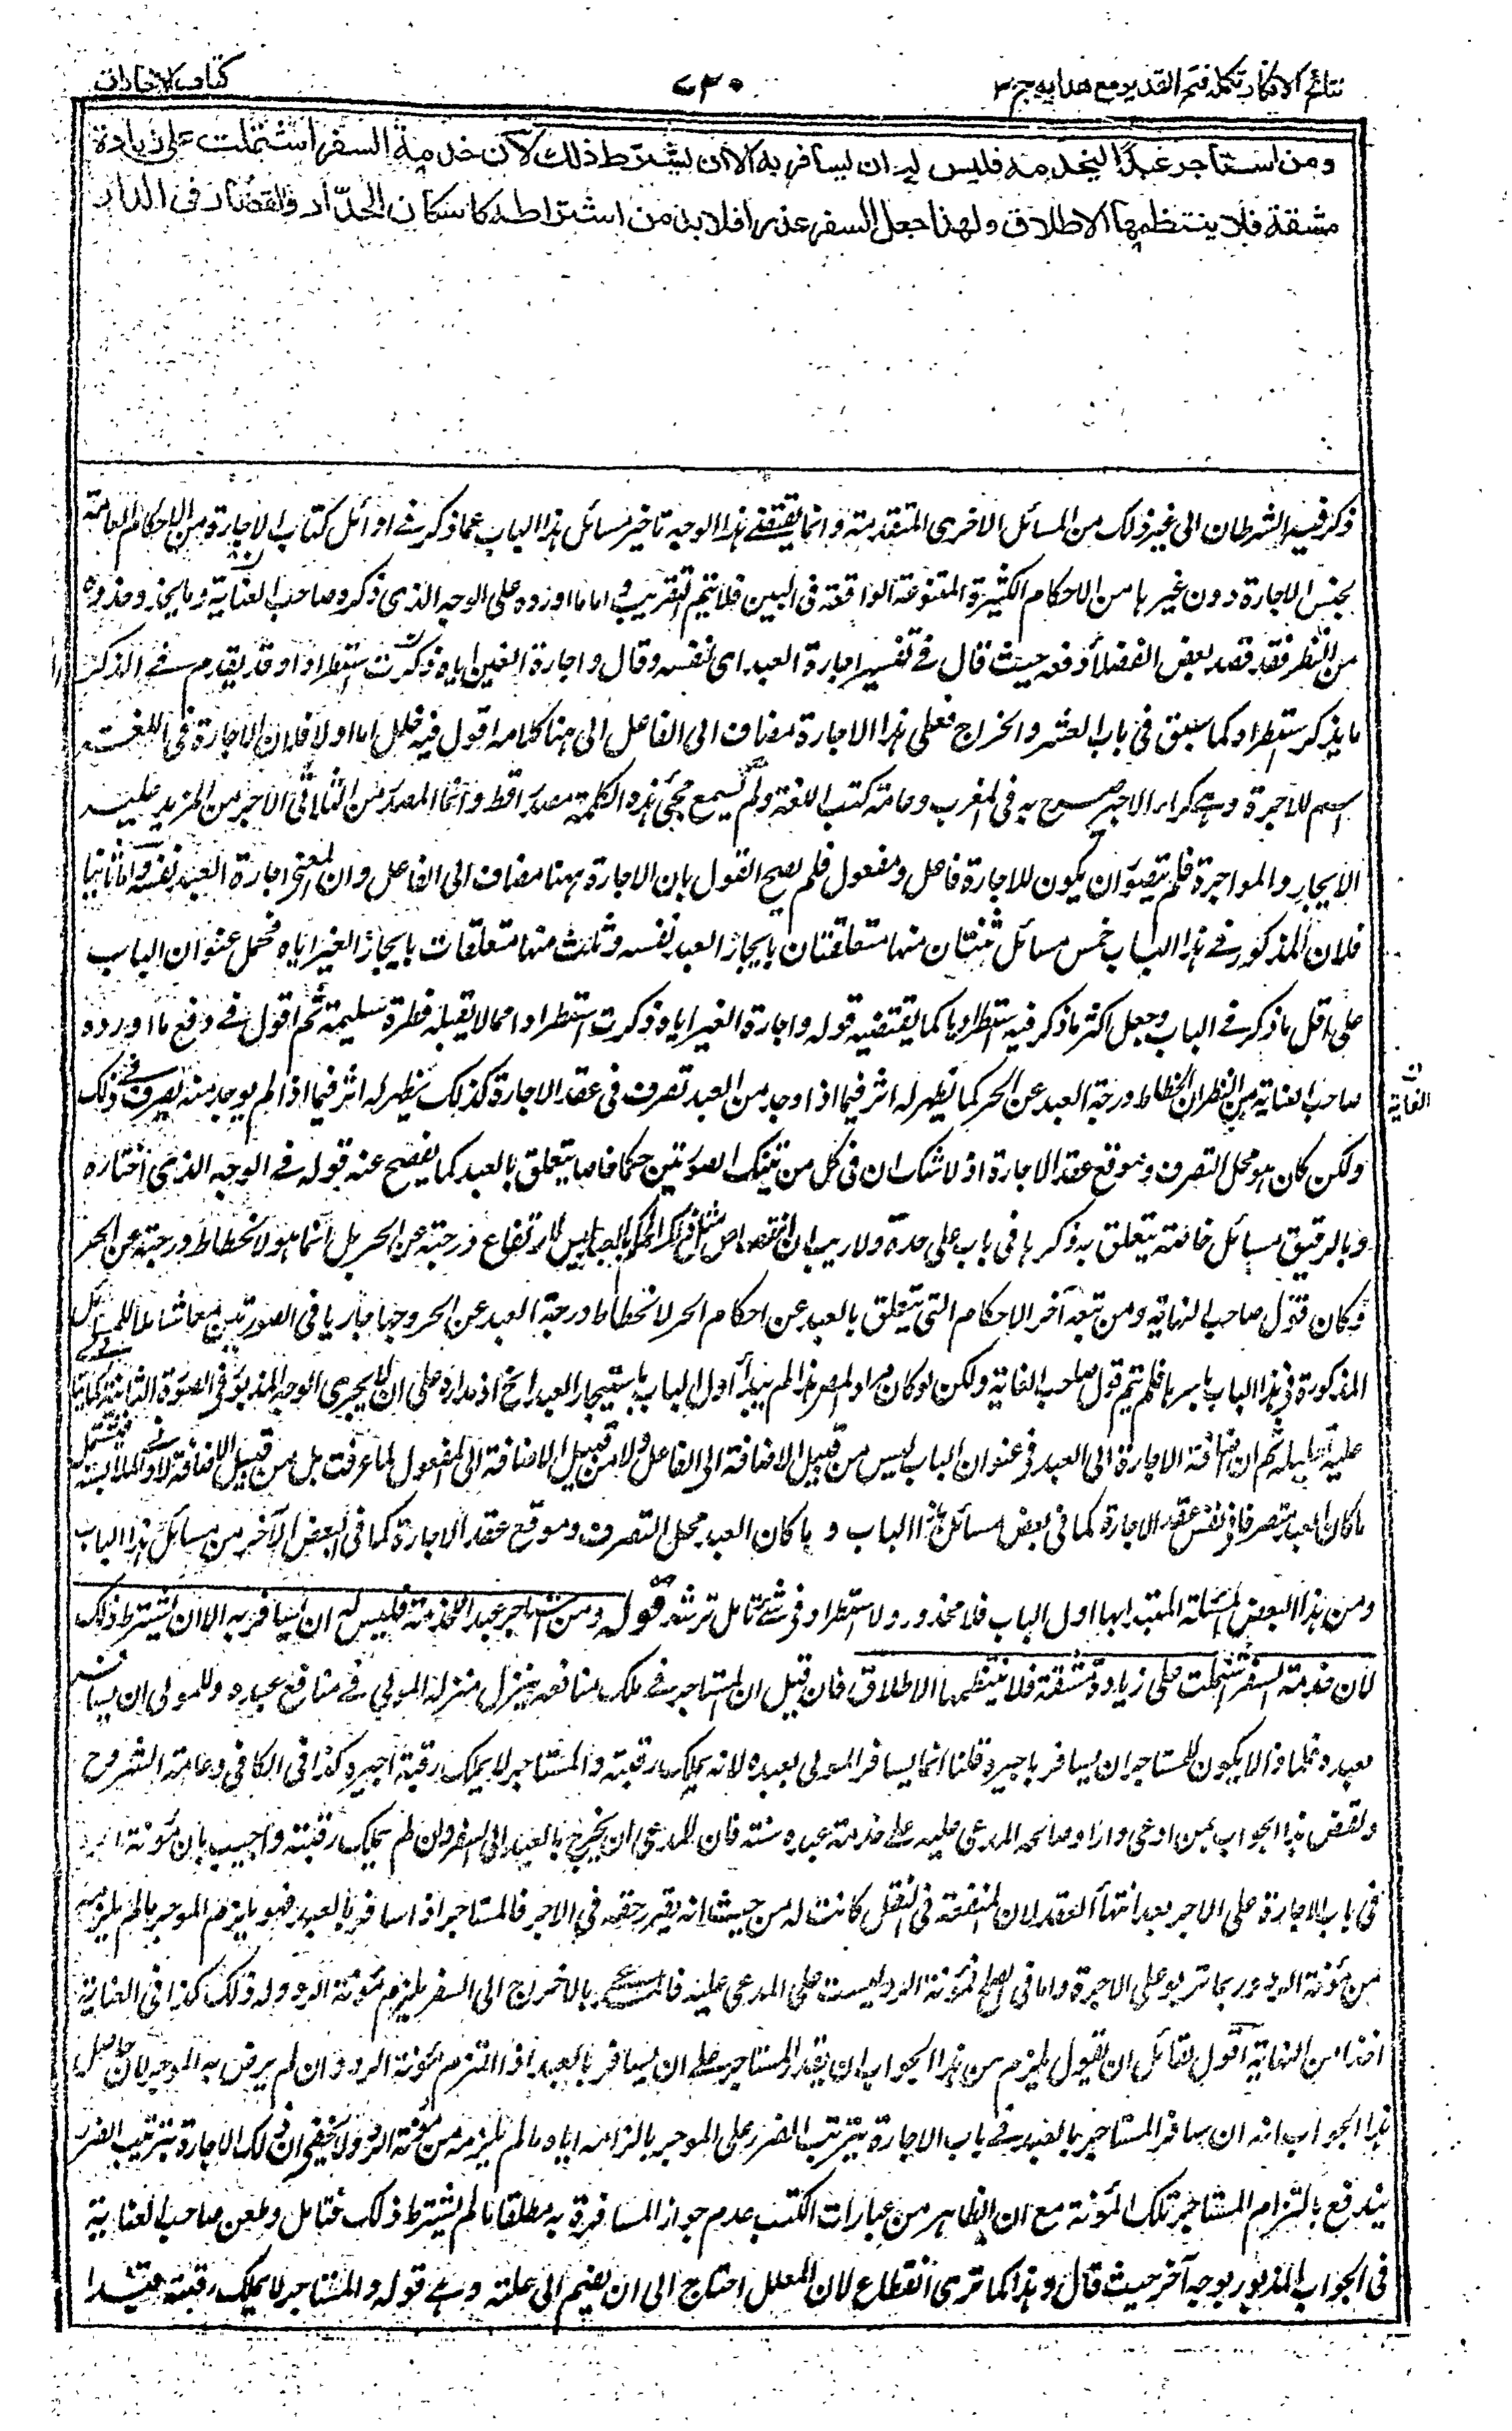 نتائج الافكار تكمله فتح القدير مع هدايه ج ٣
٧٣٠
كتاب الاجارات
ومن استاجر عبدًا ليخدمه فليس له ان يسافر به الا ان يشترط ذلك لان خدمة السفر اشتملت على زيادة
مشقة فلا ينتظمها الاطلاق ولهذا جعل السفر عذرا فلا بد من اشتراطه كاسكان الحدّاد والقصّار فى الدار
ذكر فيه الشرطان الى غير ذلك من المسائل الاخرى المتقدمة وانما يقتضى هذا الوجه تاخير مسائل هذا الباب عما ذكر فى اوائل كتاب الاجارة من الاحكام العامة
بجنس الاجارة دون غيرها من الاحكام الكثيرة المتنوعة الواقعة فى البين فلا يتم التقريب واما ما اورده على الوجه الذى ذكره صاحب العناية وما يحذو حذوه
من النظر فقد قصد بعض الفضلاء دفعه حيث قال فى تفسير اجارة العبد اى نفسه وقال واجارة الغير اياه ذكرت استطرادا وقد يقدم فى الذكر
ما يذكر استطرادا كما سبق فى باب العشر والخراج فعلى هذا الاجارة مضاف الى الفاعل الى هنا كلامه اقول فيه خلل اما اولا فلان الاجارة فى اللغة
اسم للاجرة وهى كراء الاجير صرح به فى المغرب وعامة كتب اللغة ولم يسمع مجئ هذه الكلمة مصدرا قط وانما المصدر من الثلاثى الاجر ومن المزيد عليه
الايجار والمواجرة فلم يتصور ان يكون للاجارة فاعل ومفعول فلم يصح القول بان الاجارة ههنا مضاف الى الفاعل وان المعنى اجارة العبد نفسه واما ثانيا
فلان المذكور فى هذا الباب خمس مسائل ثنتان منها متعلقتان بايجار العبد نفسه وثلث منها متعلقات بايجار الغير اياه فحمل عنوان الباب
على اقل ما ذكر فى الباب وجعل اكثر ما ذكر فيه استطراديا كما يقتضيه قوله واجارة الغير اياه ذكرت استطرادا مما لا يقبله فطرة سليمة ثم اقول فى دفع ما اورده
صاحب العناية من النظر ان انحطاط درجة العبد عن الحر كما يظهر له اثر فيما اذا وجد من العبد تصرف فى عقد الاجارة كذلك يظهر له اثر فيما اذا لم يوجد منه تصرف فى ذلك
الغاية
ولكن كان هو محل التصرف وموقع عقد الاجارة اذ لا شك ان فى كل من تينك الصورتين حكما خاصا يتعلق بالعبد كما يفصح عنه قوله فى الوجه الذى اختاره
وبالرقيق مسائل خاصة يتعلق به ذكرها فى باب على حدة ولا ريب ان اختصاص مثل ذلك الحكم بالعبد ليس لارتفاع درجته عن الحر بل انما هو لانحطاط درجته عن الحر
فكان قول صاحب النهاية ومن تبعه اخر الاحكام التى يتعلق بالعبد عن احكام الحر لانحطاط درجة العبد عن الحر وجها جاريا فى الصورتين معا شاملا للمسائل
المذكورة فى هذا الباب باسرها فلم يتم قول صاحب الغاية ولكن لو كان مراد المصنف هذا لم يبدأ اول الباب باستيجار العبد الخ اذ مداره على ان لا يجرى الوجه المذكور فى الصورة الثانية كما ينادى
عليه تعليله ثم ان اضافة الاجارة الى العبد فى عنوان الباب ليس من قبيل الاضافة الى الفاعل ولا من قبيل الاضافة الى المفعول لما عرفت بل من قبيل الاضافة لادنى الملابسة فيشتمل
ما كان العبد متصرفا فى نفس عقد الاجارة كما فى بعض مسائل هذا الباب و ما كان العبد محل التصرف وموقع عقد الاجارة كما فى البعض الآخر من مسائل هذا الباب
ومن هذا البعض المسئلة المبتدا بها اول الباب فلا محذور ولا استطراد فى شئ تامل ترشد قوله ومن استاجر عبدا للخدمة فليس له ان يسافر به الا ان يشترط ذلك
لان خدمة السفر اشتملت على زيادة مشقة فلا ينتظمها الاطلاق فان قيل ان المستاجر فى ملك منافعه ينزل منزلة المولى فى منافع عبده وللمولى ان يسافر
بعبده فلماذا لا يكون للمستاجر ان يسافر باجيره قلنا انما يسافر المولى بعبده لانه يملك رقبته والمستاجر لا يملك رقبة اجيره كذا فى الكافى وعامة الشروح
ونقض هذا الجواب بمن ادعى دارا وصالحه المدعى عليه على خدمة عبده سنة فان للمدعى ان يخرج بالعبد الى السفر وان لم يملك رقبته واجيب بان مئونة الرد
فى باب الاجارة على الاجر بعد انتهاء العقد لان المنفعة فى النقل كانت له من حيث انه تقرر حقه فى الاجر فالمستاجر اذا سافر بالعبد فهو يلزم الموجر ما لم يلتزمه
من مئونة الرد وربما تربو على الاجرة واما فى الصلح فمئونة الرد ليست على المدعى عليه فالمستحق بالاخراج الى السفر يلتزم مئونة الرد وله ذلك كذا فى العناية
اخذا من النهاية اقول لقائل ان يقول يلزم من هذا الجواب ان يقدر المستاجر على ان يسافر بالعبد اذا التزم مئونة الرد وان لم يرض به الموجر لان حاصل
هذا الجواب انه ان سافر المستاجر بالعبد فى باب الاجارة يترتب الضرر على الموجر بالزامه اياه ما لم يلتزمه من مئونة الرد ولا يخفى ان فى تلك الاجارة ترتيب الضرر
يندفع بالتزام المستاجر تلك المئونة مع ان الظاهر من عبارات الكتب عدم جواز المسافرة به مطلقا ما لم يشترط ذلك فتامل وطعن صاحب العناية
فى الجواب المذكور بوجه آخر حيث قال وهذا كما ترى انقطاع لان المعلل احتاج الى ان يضم الى علته وهى قوله والمستاجر لا يملك رقبته قيدا